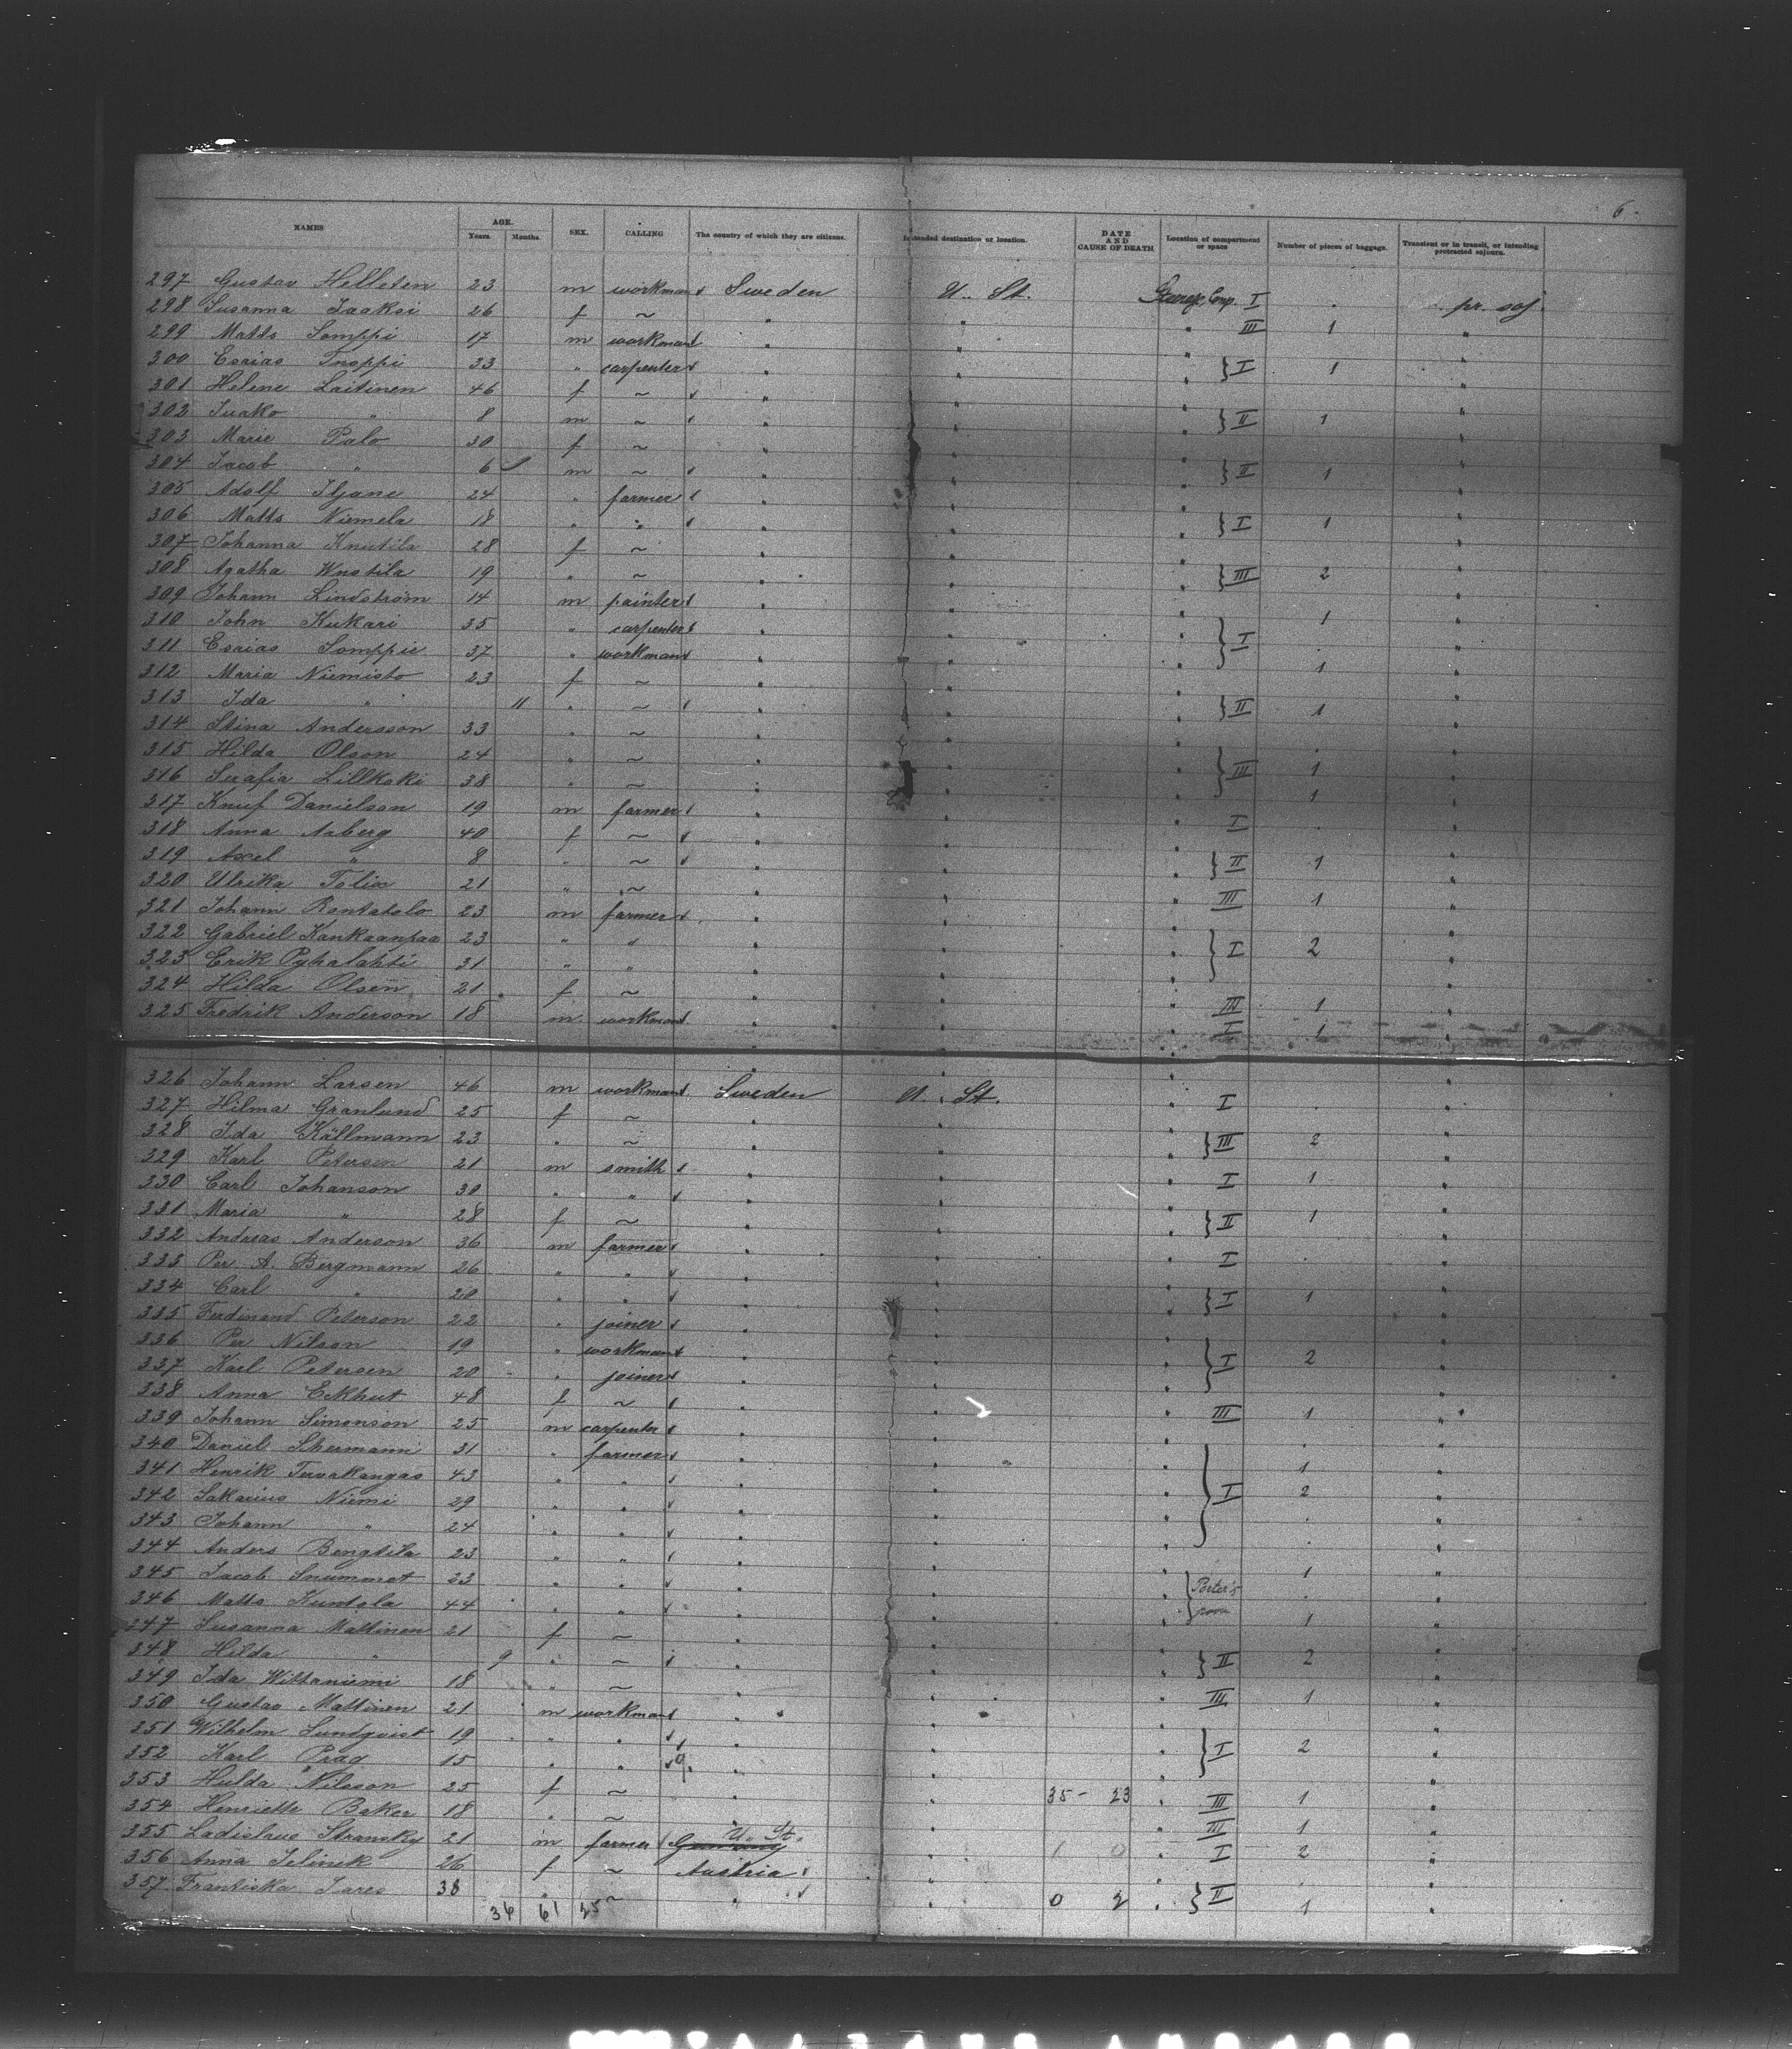 6.
NAMES AGE. Years. Months. SEX. CALLING The country of which they are citizens. Intended destination or location. DATE AND CAUSE OF DEATH Location of compartment or space Number of pieces of baggage. Transient or in transit, or intending protracted sojourn.
297 Gustav Helleten 23 m workman Sweden U. St. Comp. I pr. soj.
298 Susanna Jaaksi 26 f ~ " " " III 1 "
299 Matts Somppi 17 m workman " " " "
300 Esaias 23 " carpenter " " " } I 1 "
301 Helene Laitinen 46 f ~ " " " "
302 " 8 m ~ " " " } II 1 "
303 Marie Palo 30 f ~ " " " "
304 Jacob " 6 m ~ " " " } II 1 "
305 Adolf 24 " farmer " " " "
306 Matts Niemela 18 " " " " " } I 1 "
307 Johanna Knutila 28 f ~ " " " "
308 Agatha 19 " ~ " " " } III 2 "
309 Johann Lindström 14 m painter " " " "
310 John Kukari 35 " carpenter " " " } I 1 "
311 Esaias Somppi 37 " workman " " " 1 "
312 Maria Niemisto 23 f ~ " " " "
313 Ida " 11 " ~ " " " } II 1 "
314 Stina Andersson 33 " ~ " " " "
315 Hilda Olson 24 " ~ " " " } III 1 "
316 Serafia Lillkoki 38 " ~ " " " 1 "
317 Knuf Danielson 19 m farmer " " " I "
318 Anna Aaberg 40 f ~ " " " "
319 Axel " 8 " ~ " " " } II 1 "
320 Ulrika Tolix 21 " ~ " " " III 1 "
321 Johann Rantatalo 23 m farmer " " " "
322 Gabriel Kankaanpaa 23 " " " " " } I 2 "
323 Erik Pyhalahti 31 " " " " " "
324 Hilda Olsen 21 f ~ " " " III 1 "
325 Fredrik Anderson 18 m workman " " " I 1 "
326 Johann Larsen 46 m workman Sweden U. St. " I "
327 Hilma Granlund 25 f ~ " " " "
328 Ida Källmann 23 " ~ " " " } III 2 "
329 Karl Petersen 21 m smith " " " I 1 "
330 Carl Johanson 30 " " " " " "
331 Maria " 28 f ~ " " " } II 1 "
332 Andreas Anderson 36 m farmer " " " I "
333 Per A. Bergmann 26 " " " " " "
334 Carl " 20 " " " " " } I 1 "
335 Ferdinand Peterson 22 " joiner " " " "
336 Per Nilson 19 " workman " " " } I 2 "
337 Karl Petersen 20 " joiner " " " "
338 Anna Eckhut 48 f ~ " " " III 1 "
339 Johann Simonson 25 m carpenter " " " "
340 Daniel Shermann 31 " farmer " " " 1 "
341 Henrik Tervakangas 43 " " " " " } I 2 "
342 Sakarius Niemi 29 " " " " " "
343 Johann " 24 " " " " " "
344 Anders Bengtila 23 " " " " " 1 "
345 Jacob 23 " " " " " } Porter's "
346 Matts 44 " " " " " room 1 "
347 Susanna Mattinen 21 f ~ " " " "
348 Hilda " 9 " ~ " " " } II 2 "
349 Ida Wittaniemi 18 " ~ " " " III 1 "
350 Gustav Mattinen 21 m workman " " " "
351 Wilhelm Lundqvist 19 " " " " " } I 2 "
352 Karl Prag 15 " " " " " "
353 Hulda Nilsson 25 f ~ " " 35 - 23 " III 1 "
354 Henriette Baker 18 " ~ " " " III 1 "
355 Ladislaus Stransky 21 m farmer Germany U. St. " 1 0 " I 2 "
356 Anna Jelinek 26 f ~ Austria " " "
357 Frantiska 38 " ~ " " 0 2 " } II 1 "
36 61 25